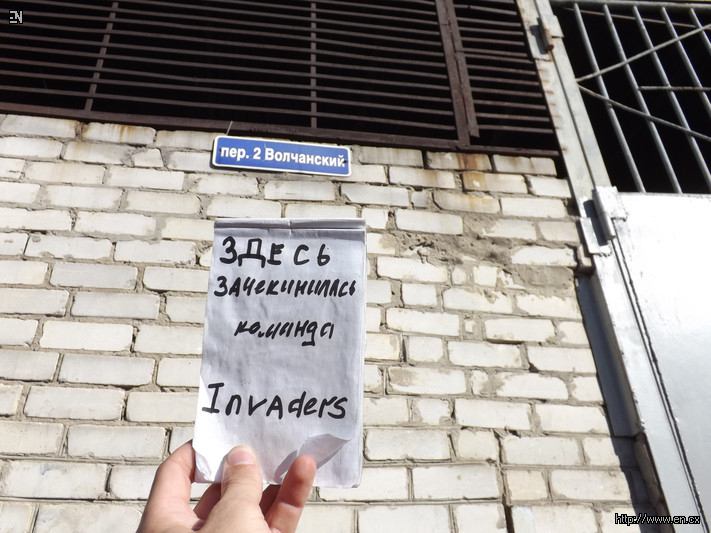 EN
пер. 2 Волчанский
ЗДЕСЬ
ЗАЧЕКИНИЛАСЬ
команда
Invaders
http://www.en.cx